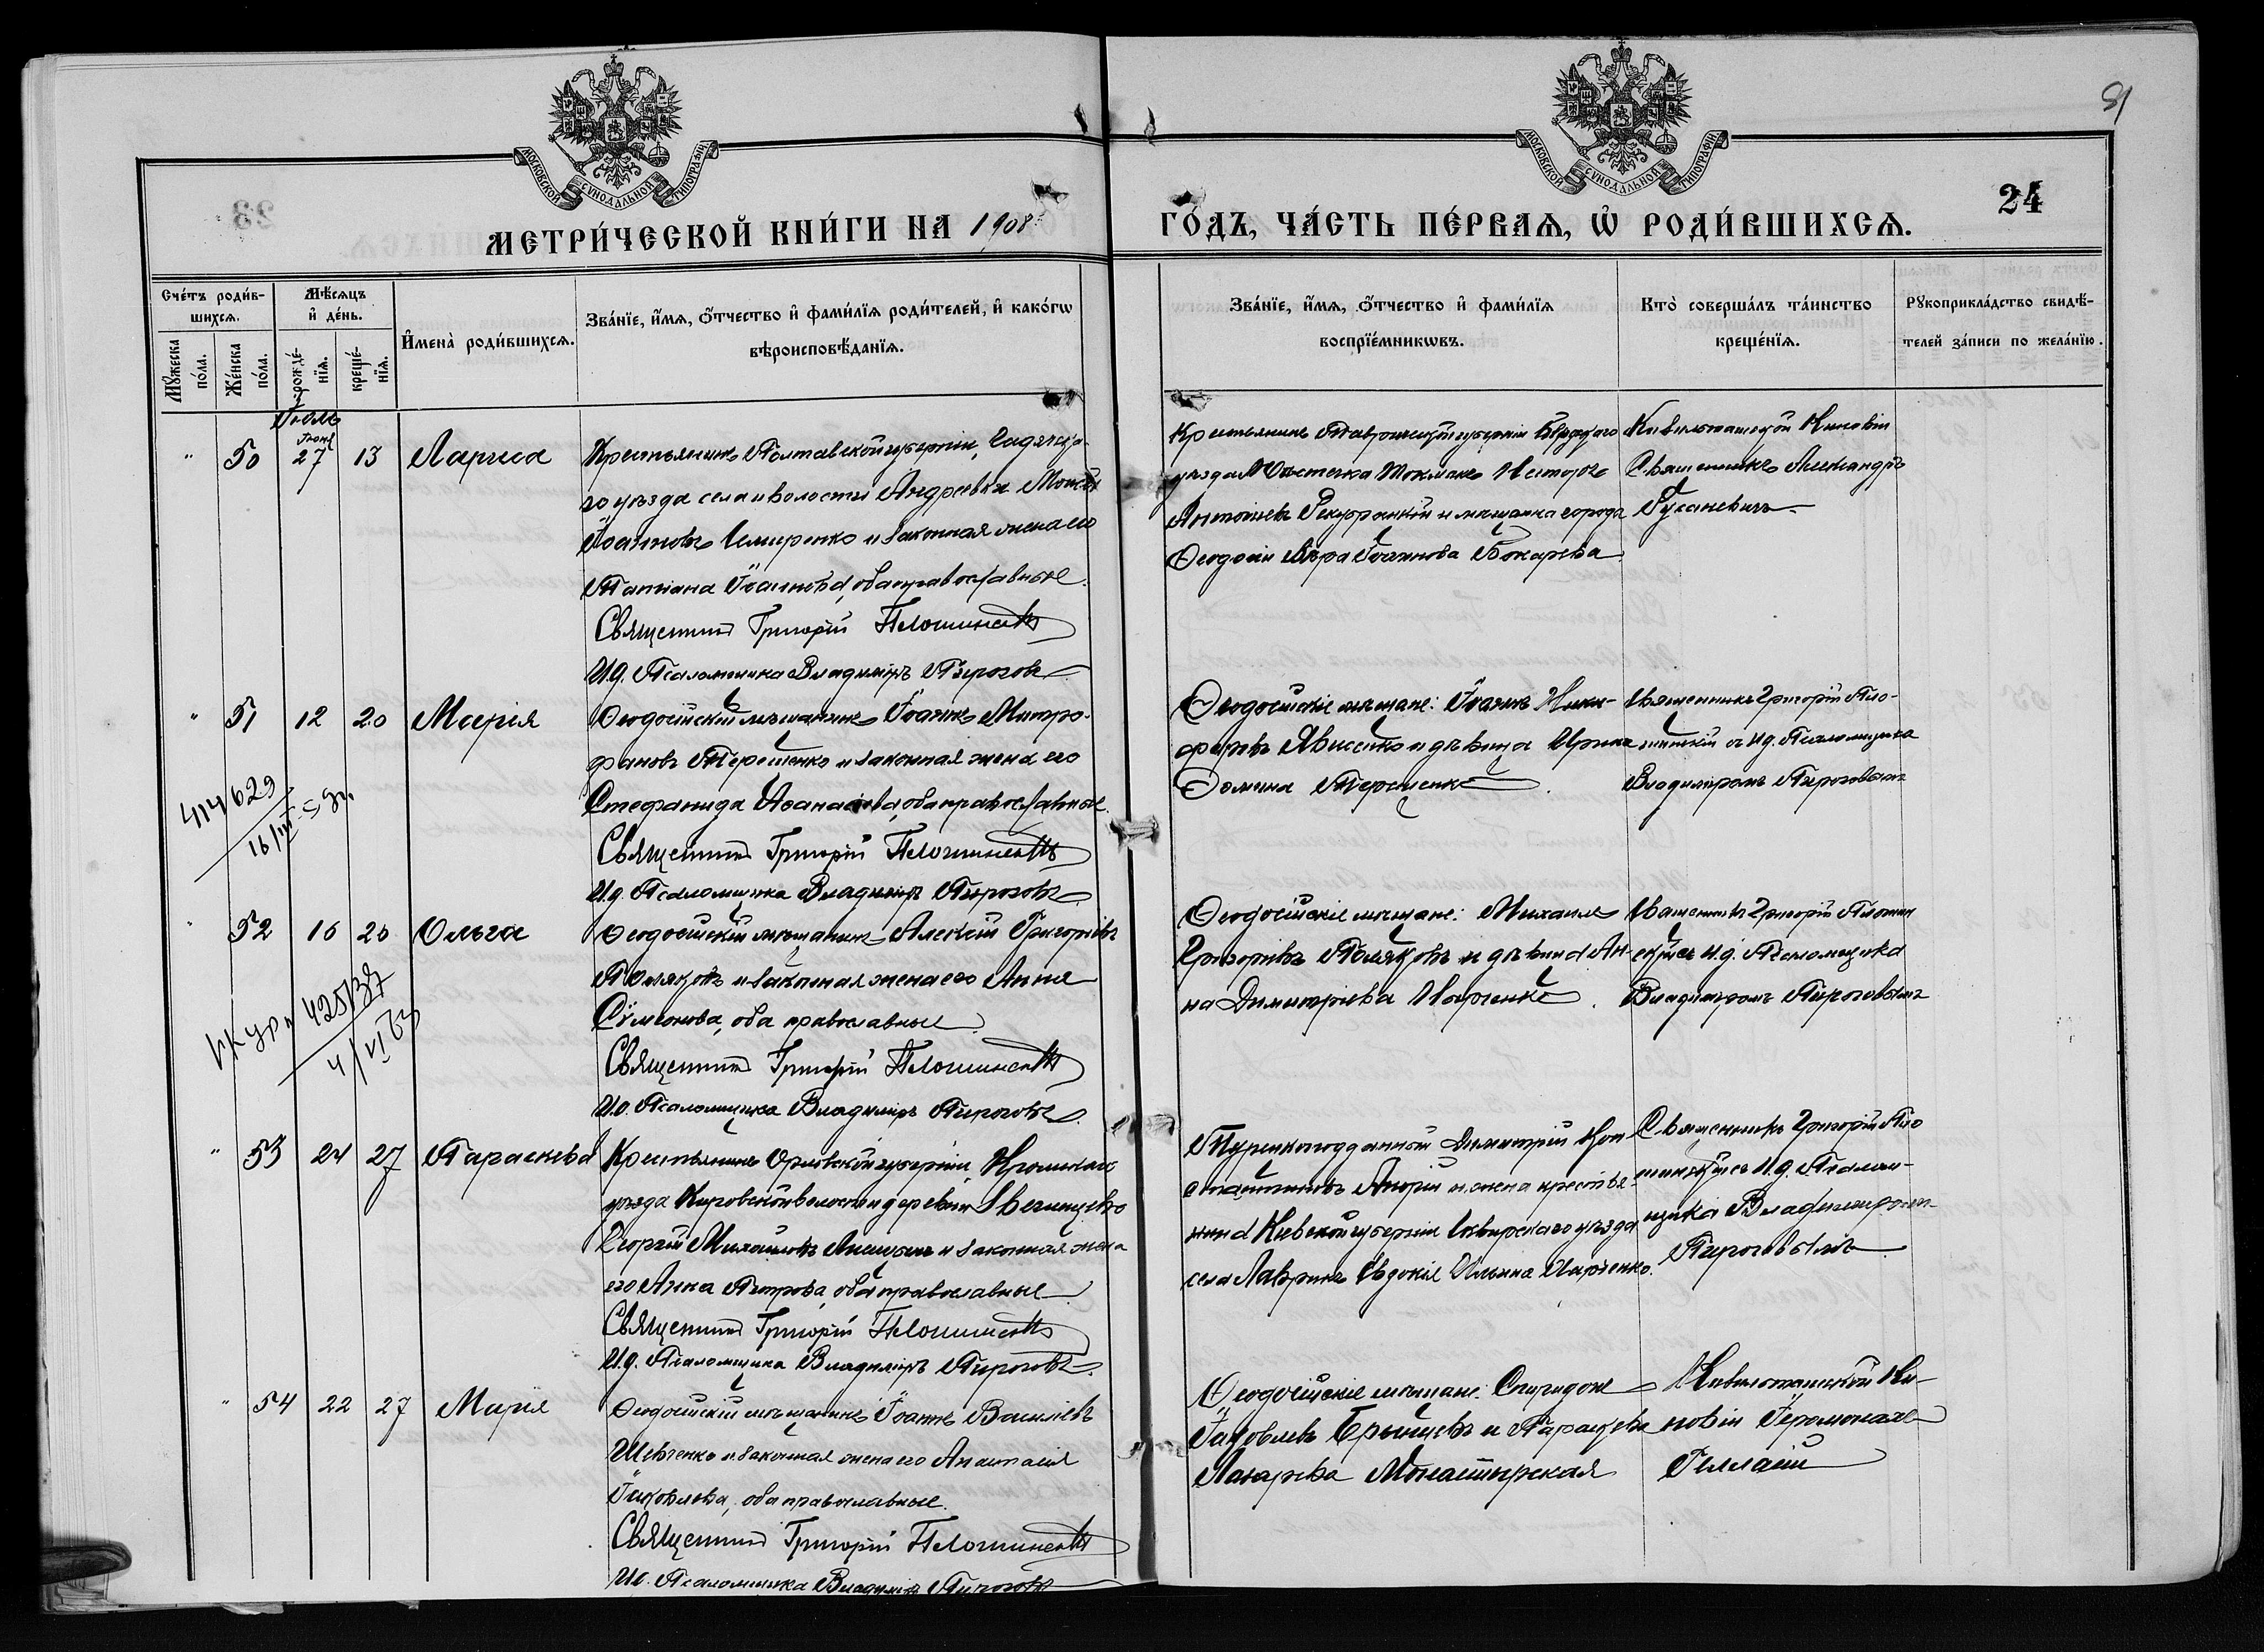 81
МОСКОВСКОЙ СѴНОДАЛЬНОЙ ТИПОГРАФІИ
МОСКОВСКОЙ СѴНОДАЛЬНОЙ ТИПОГРАФІИ
24
МЕТРИ́ЧЕСКОЙ КНИ́ГИ НА 1908
ГО́ДЪ, ЧА́СТЬ ПЕ́РВАѦ, Ѡ҆ РОДИ́ВШИХСѦ.
Сче́тъ роди́вшихсѧ.
Мꙋ́жеска по́ла.
Же́нска по́ла.
Мѣ́сѧцъ и҆ де́нь.
рожде́нїѧ.
креще́нїѧ.
И҆мена̀ роди́вшихсѧ.
Зва́нїе, и҆́мѧ, ѻ҆́тчество и҆ фами́лїѧ роди́телей, и҆ како́гѡ
вѣроисповѣ́данїѧ.
Зва́нїе, и҆́мѧ, ѻ҆́тчество и҆ фами́лїѧ
воспрїе́мникѡвъ.
Кто̀ соверша́лъ та́инство
креще́нїѧ.
Рꙋкоприкла́дство свидѣ́-
телей за́писи по жела́нїю.
Іюль
Іюня
" 50 27 13 Лариса
Крестьянинъ Полтавской губерніи, Гадячска-
го уѣзда села и волости Андреевки Моисей
Іоанновъ Семиренко и законная жена его
Татіана Іоаннова, оба православные.
Священникъ Григорій
И.д. Псаломщика Владиміръ Пироговъ
Крестьянинъ Таврической губерніи Бердянского
уѣзда Мѣстечка Токмакъ Несторъ
Антоніевъ и мѣщанка города
Ѳеодосіи Вѣра Іоаннова Бокарева
Кизильташской Киновіи
Священникъ Александръ
" 51 12 20 Марія
Ѳеодосійскій мѣщанинъ Іоаннъ Митро-
фановъ Терещенко и законная жена его
Стефанида Аѳанасіева, оба православные.
Священникъ Григорій
И.д. Псаломщика Владиміръ Пироговъ
Ѳеодосійскіе мѣщане: Іоаннъ Ники-
форовъ и дѣвица Ирина
Ѳомина Терещенко.
Священникъ Григорій Пло-
съ И.д. Псаломщика
Владиміромъ Пироговымъ
414629
16/III-59г.
" 52 16 20 Ольга
Ѳеодосійскій мѣщанинъ Алексій Григоріевъ
Поляковъ и законная жена его Анна
Сѵмеонова, оба православные.
Священникъ Григорій
И.д. Псаломщика Владиміръ Пироговъ
Ѳеодосійскіе мѣщане: Михаилъ
Григоріевъ Поляковъ и дѣвица Ан-
на Димитріева
Священникъ Григорій
съ И.д. Псаломщика
Владиміромъ Пироговымъ
425137
4/VI
" 53 24 27 Параскева
Крестьянинъ Орловской губерніи, Кромскаго
уѣзда Кировской волости деревни
Георгій Михаиловъ и законная жена
его Анна Петрова, оба православные
Священникъ Григорій
И.д. Псаломщика Владиміръ Пироговъ
Турецкоподданный Димитрій Кон-
стантиновъ и жена крестья-
нина Кіевской губерніи Сквирскаго уѣзда
села Евдокія Ильина Харченко.
Священникъ Григорій Пло
съ И.д. Псалом-
щика Владиміромъ
Пироговымъ
" 54 22 27 Марія
Ѳеодосійскій мѣщанинъ Іоаннъ Василіевъ
Шевченко и законная жена его Анастасія
Іаковлева, оба православные.
Священникъ Григорій
И.д. Псаломщика Владиміръ Пироговъ
Ѳеодосійскіе мѣщане: Спиридонъ
Іаковлевъ и Параскева
Лазарева Монастырская
Кизильташской Ки-
новіи Іеромонахъ
Геласій